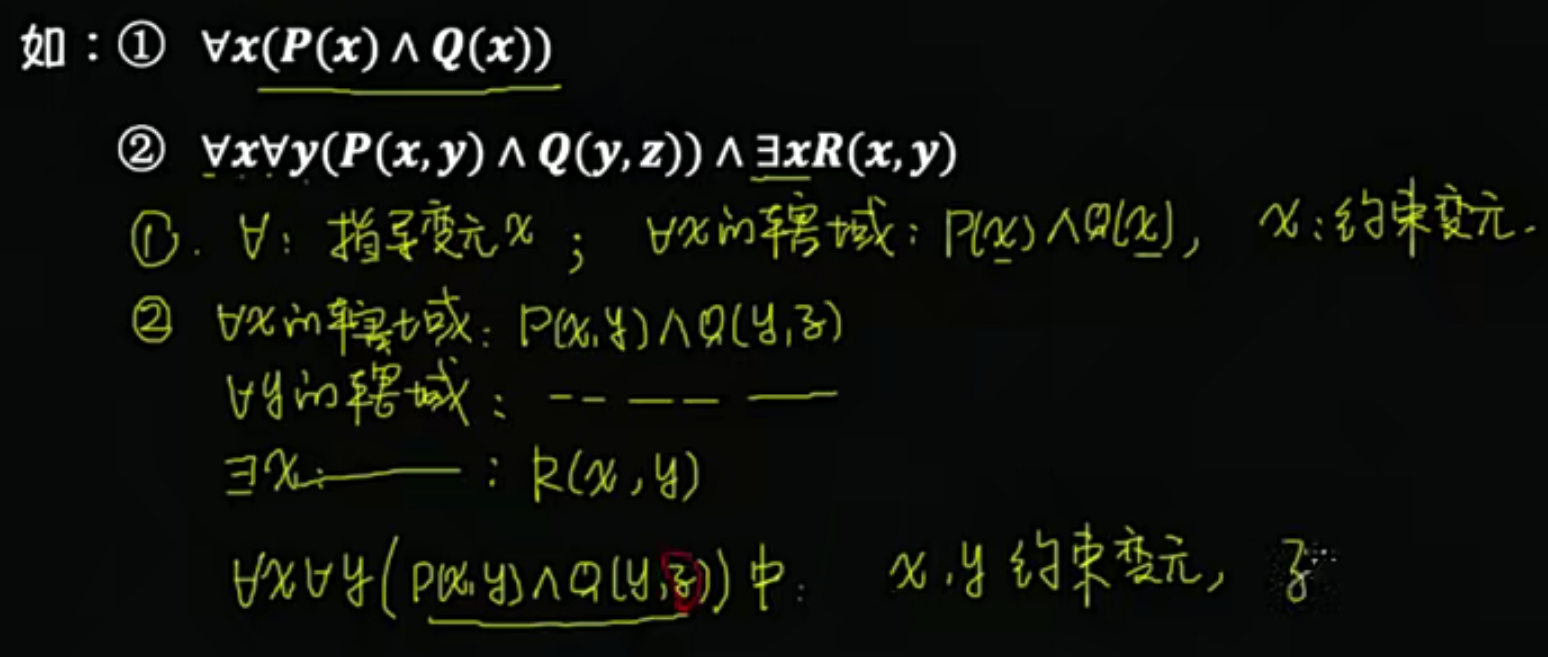 如：① ∀x(P(x)∧Q(x))
② ∀x∀y(P(x,y)∧Q(y,z))∧∃xR(x,y)
①. ∀：指导变元x； ∀x的辖域：P(x)∧Q(x)， x：约束变元.
② ∀x的辖域：P(x,y)∧Q(y,z)
∀y的辖域：—— —— ——
∃x：——：R(x,y)
∀x∀y(P(x,y)∧Q(y,z))中： x,y约束变元，z